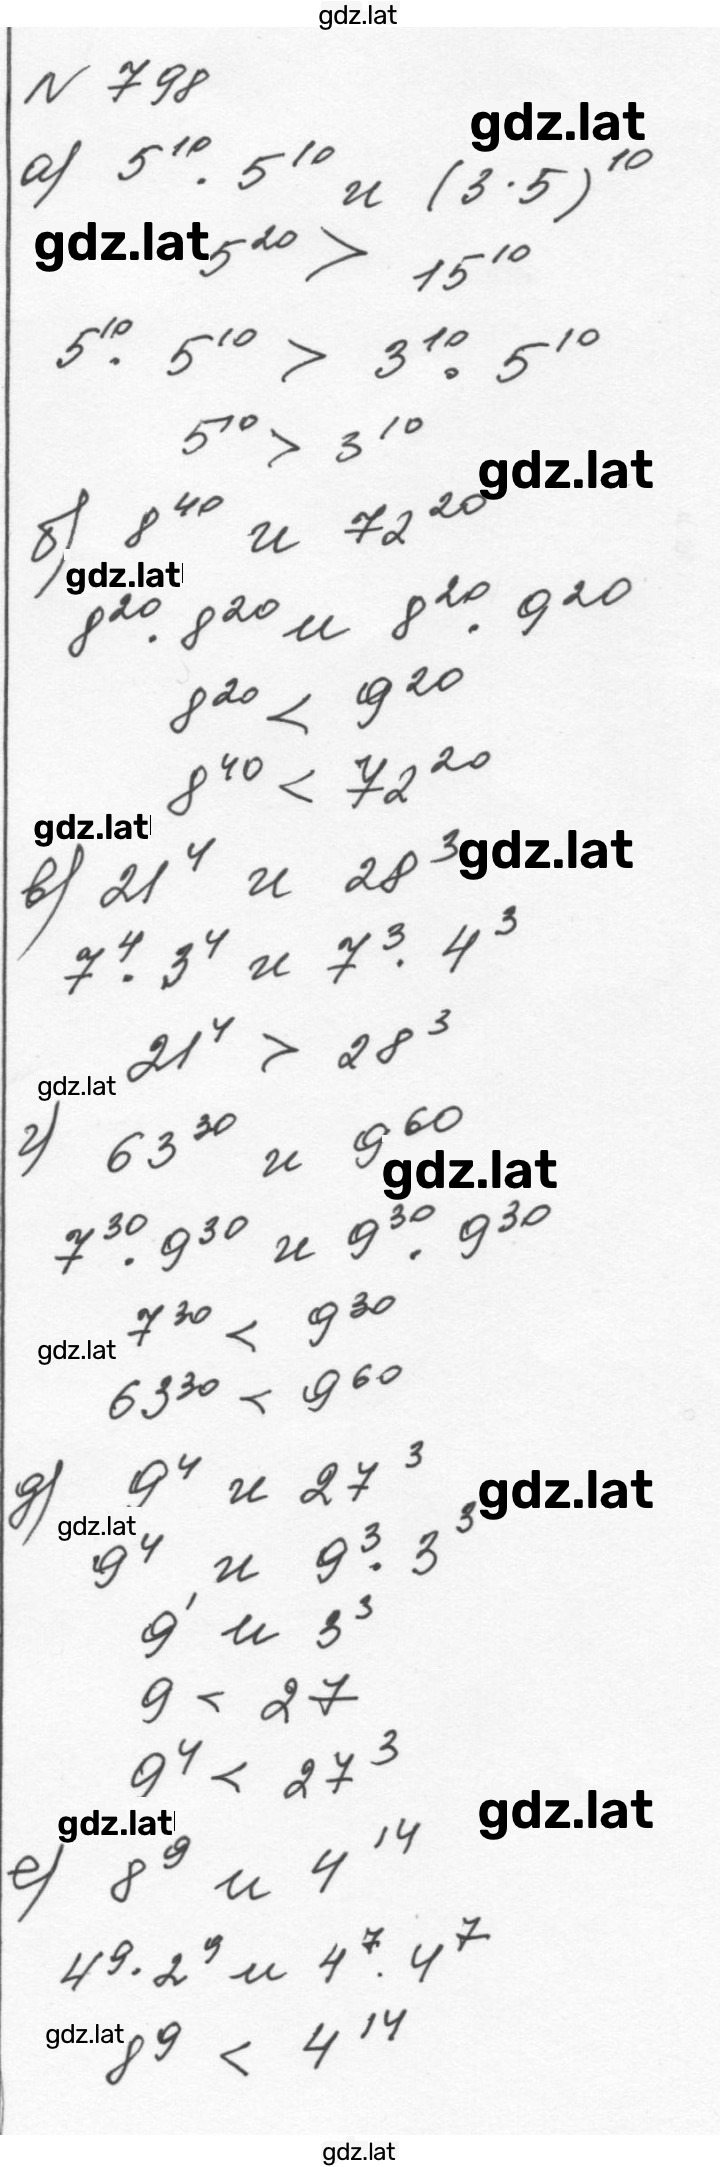 gdz.lat
N 798
gdz.lat
а) 5¹⁰ · 5¹⁰ и (3 · 5)¹⁰
gdz.lat
5²⁰ > 15¹⁰
5¹⁰ · 5¹⁰ > 3¹⁰ · 5¹⁰
5¹⁰ > 3¹⁰
gdz.lat
б) 8⁴⁰ и 72²⁰
gdz.lat
8²⁰ · 8²⁰ и 8²⁰ · 9²⁰
8²⁰ < 9²⁰
8⁴⁰ < 72²⁰
gdz.lat
в) 21⁴ и 28³
gdz.lat
7⁴ · 3⁴ и 7³ · 4³
21⁴ > 28³
gdz.lat
г) 63³⁰ и 9⁶⁰
gdz.lat
7³⁰ · 9³⁰ и 9³⁰ · 9³⁰
7³⁰ < 9³⁰
gdz.lat
63³⁰ < 9⁶⁰
д) 9⁴ и 27³
gdz.lat
gdz.lat
9⁴ и 9³ · 3³
9¹ и 3³
9 < 27
9⁴ < 27³
gdz.lat
gdz.lat
е) 8⁹ и 4¹⁴
4⁹ · 2⁹ и 4⁷ · 4⁷
gdz.lat
8⁹ < 4¹⁴
gdz.lat